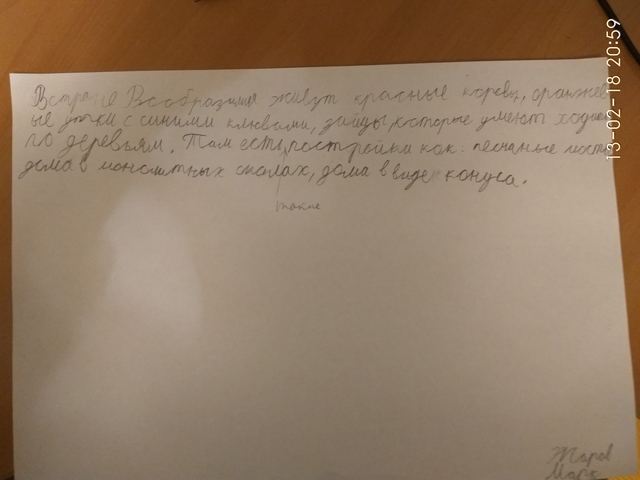 В стране Вообразилия живут красные коровы, оранжев
ые утки с синими клювами, зайцы, которые умеют ходить
по деревьям. Там есть постройки как: песчаные мосты
дома в монолитных скалах, дома в виде конуса.
такие
Жаров
Марк
13-02-18 20:59